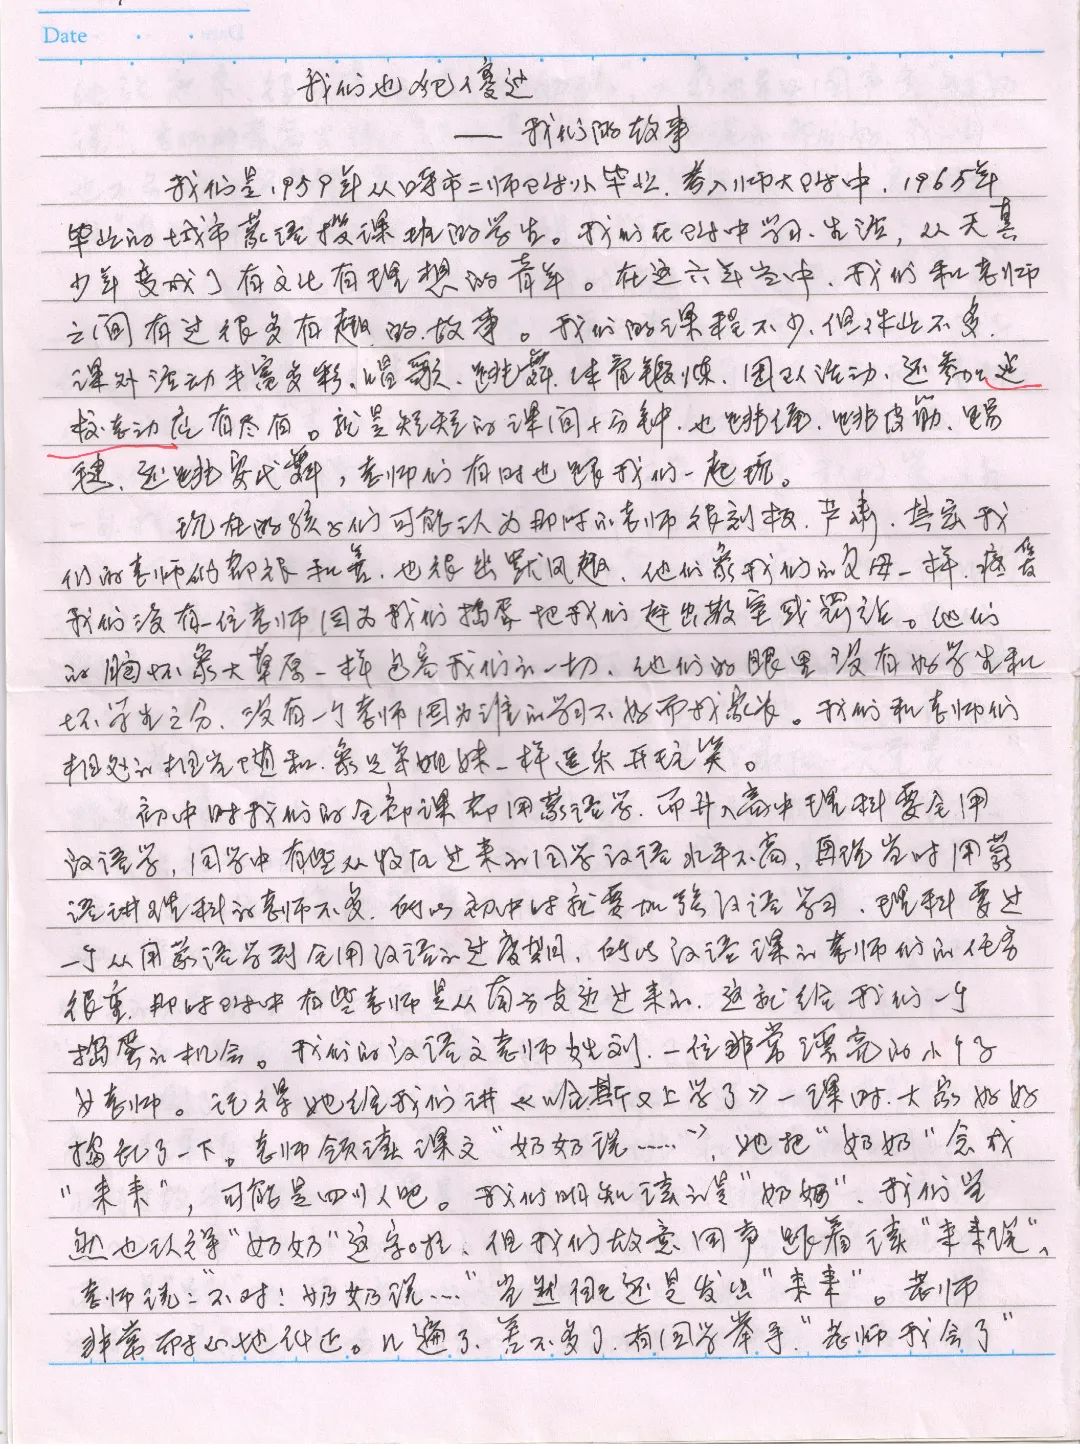 Date
我们也犯傻过
—— 我们的故事
我们是1959年从呼市二师附小毕业,考入师大附中,1965年
毕业的城市蒙语授课班的学生。我们在附中学习、生活,从天真
少年变成了有文化有理想的青年。在这六年当中,我们和老师
之间有过很多有趣的故事。我们的课程不少,但作业不多,
课外活动丰富多彩、唱歌、跳舞、体育锻炼、团队活动、还参加
校劳动应有尽有。就是短短的课间十分钟,也跳绳、跳皮筋、踢
毽、还跳安代舞,老师们有时也跟我们一起玩。
现在的孩子们可能认为那时的老师很刻板、严肃,其实我
们的老师们都很和善,也很幽默风趣,他们象我们的父母一样,疼爱
我们没有一位老师因为我们捣蛋把我们赶出教室或罚站。他们
的胸怀象大草原一样包容我们的一切,他们的眼里没有好学生和
坏学生之分,没有一个老师因为谁的学习不好而找家长。我们和老师们
相处的相当随和,象兄弟姐妹一样逗乐开玩笑。
初中时我们的全部课都用蒙语学,而升入高中理科要全用
汉语学,同学中有些从牧区过来的同学汉语水平不高,再说当时用蒙
语讲理科的老师不多,所以初中时就要加强汉语学习,理科要过
一个从用蒙语学到全用汉语的过度期,所以汉语课的老师们的任务
很重,那时附中有些老师是从南方支边过来的,这就给我们一个
捣蛋的机会。我们的汉语文老师姓刘,一位非常漂亮的小个子
女老师。记得她给我们讲《哈斯又上学了》一课时,大家好好
捣乱了一下。老师领读课文“奶奶说……”,她把“奶奶”念成
“来来”,可能是四川人吧。我们明知读的是“奶奶”,我们当
然也认得“奶奶”这字,但我们故意同声跟着读“来来说”,
老师说:“不对!奶奶说……”当然还是发出“来来”。老师
非常耐心地纠正。几遍了,差不多了,有同学举手“老师我会了”